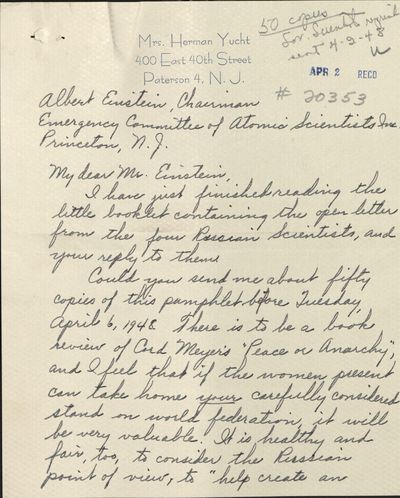 50 copies
Sov. Scientists reprint
sent 4-2-48
Mrs. Herman Yucht
400 East 40th Street
Paterson 4, N. J.
APR 2 REC'D
# 20353
Albert Einstein, Chairman
Emergency Committee of Atomic Scientists Inc.
Princeton, N. J.
My dear Mr. Einstein,
I have just finished reading the
little booklet containing the open letter
from the four Russian Scientists, and
your reply to them.
Could you send me about fifty
copies of this pamphlet before Tuesday,
April 6, 1948. There is to be a book
review of Cord Meyer's "Peace or Anarchy",
and I feel that if the women present
can take home your carefully considered
stand on world federation, it will
be very valuable. It is healthy and
fair, too, to consider the Russian
point of view, to "help create an